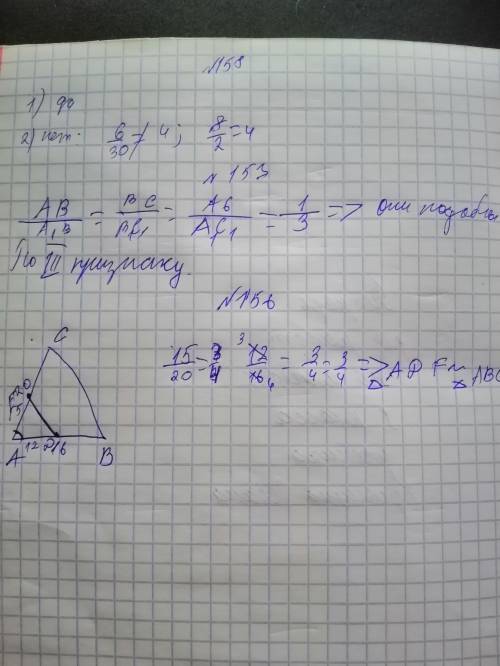 №158
1) да
2) нет. 6/30 ≠ 4; 8/2 = 4
№153
AB/A₁B = BC/Bf₁ = Ab/Af₁ = 1/3 => они подобны
По III признаку.
№156
15/20 = 3/4 12/16 3 4 = 3/4 = 3/4 => △ADF ~ △ABC
C
F 20
15
A 12 D 16 B